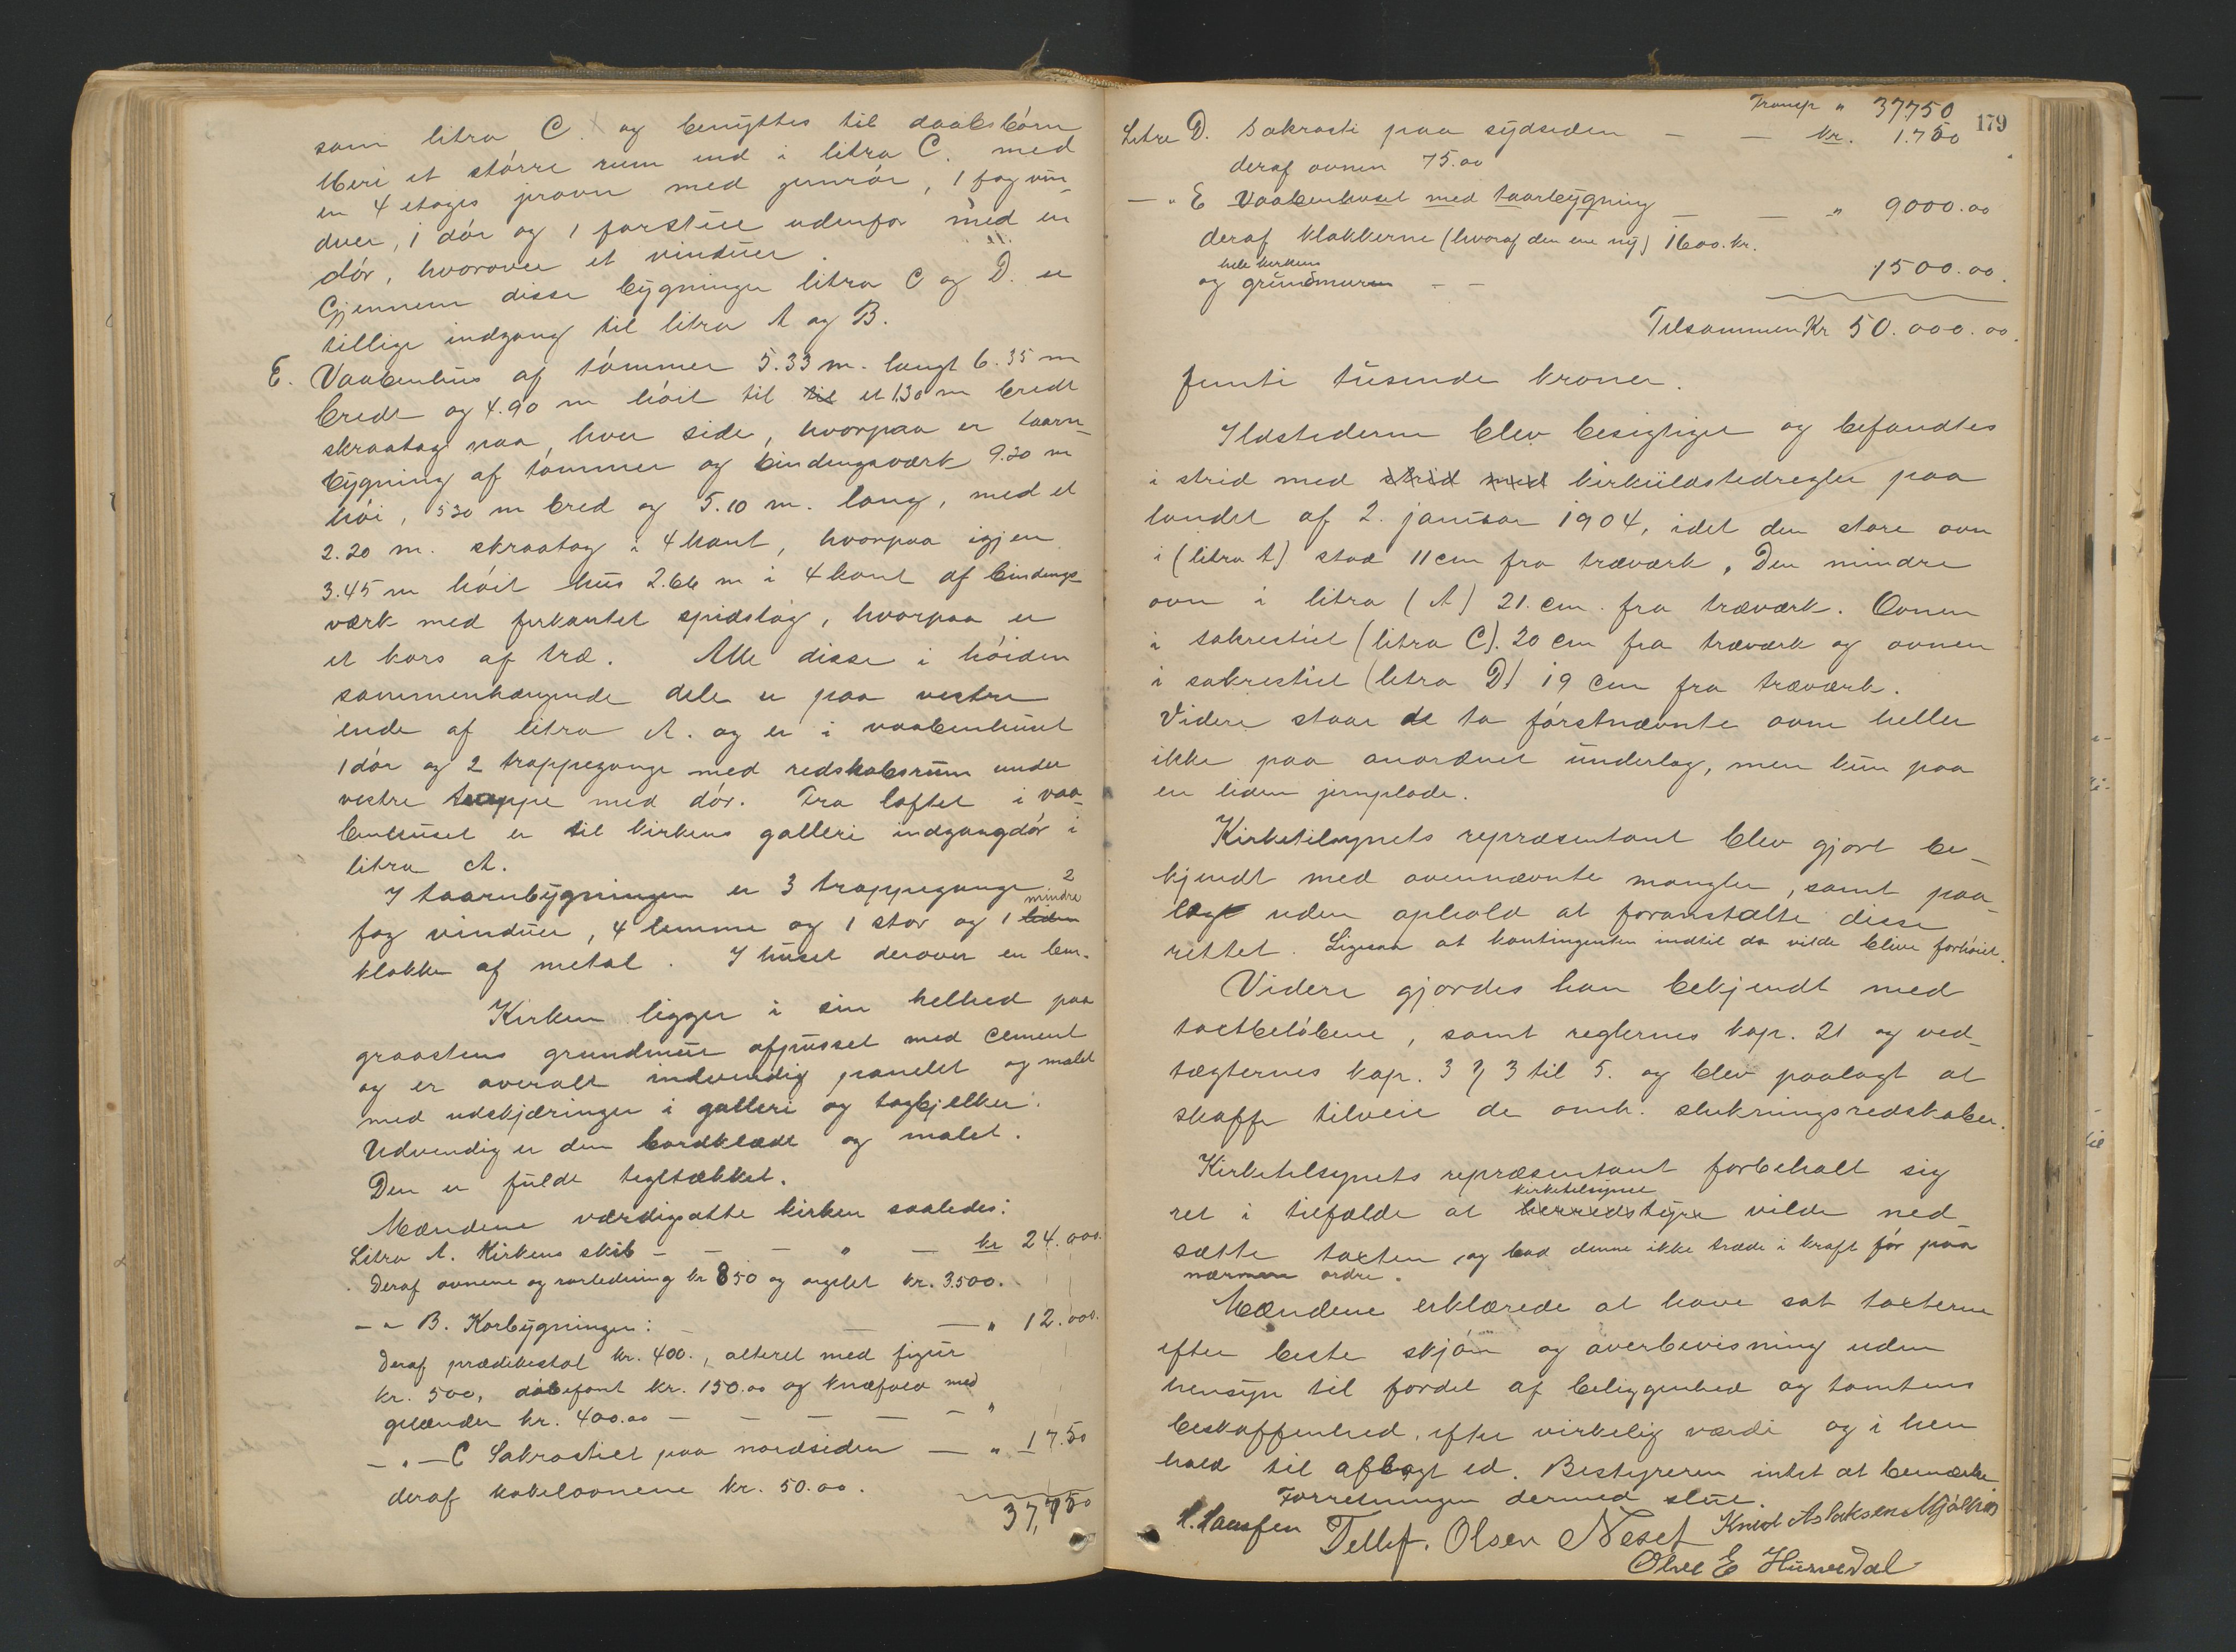 som litra C. og benyttes til daabsbörn
Heri et större rum end i litra C. med
en 4 etages jernovn med jernrör, 1 fag vin-
duer, 1 dör og 1 forstue udenfor med en
dör, hvorover et vindue.
Gjennem disse bygninger litra C og D. er
tillige indgang til litra A og B.
E. Vaabenhus af tömmer 5.33 m. langt 6.35 m
bredt og 4.90 m höit til til et 1.30 m bredt
skraatag paa hver side, hvorpaa er taarn-
bygning af tömmer og bindingsværk 9.20 m
höi, 5.30 m bred og 5.10 m. lang, med et
2.20 m. skraatag i 4kant, hvorpaa igjen
3.45 m höit hus 2.66 m i 4kant af bindings-
værk med firkantet spidstag, hvorpaa er
et kors af træ. Alle disse i höiden
sammenhængende dele er paa vestre
ende af litra A. og er i vaabenhuset
1 dör og 2 trappegange med redskabsrum under
vestre trappe med dör. Fra loftet i vaa-
benhuset er til kirkens galleri indgangdör i
litra A.
I taarnbygningen er 3 trappegange 2
fag vinduer, 4 lemme og 1 stor og 1 liden mindre
klokke af metal. I huset derover en lem.
Kirken ligger i sin helhed paa
graastens grundmur afpusset med cement
og er overalt indvendig panelet og malet
med udskjæringer i galleri og tagbjelker.
Udvendig er den bordklædt og malet.
Den er fuldt tegltækket.
Mændene værdigsatte kirken saaledes:
Litra A. Kirkens skib - - - " - kr 24.000.
Deraf ovnene og rørledning kr 850 og orgelet kr. 3.500.
- " B. Korbygningen: - - - " 12.000.
Deraf prædikestol kr. 400., alteret med figur
kr. 500, döbefont kr. 150.00 og knæfald med
gelænder kr. 400.00 - - - - - "
- " - C Sakrastiet paa nordsiden - " 17.50
deraf kakelovnene kr. 50.00.
37,750
179
Transp " 37750
Litra D. Sakrasti paa sydsiden - - kr. 1.750
deraf ovnen 75.00
- " E Vaabenhuset med taarbygning - - " 9000.00
deraf klokkerne (hvoraf den ene ny) 1600. kr.
hele kirkens
og grundmuren - - 1500.00.
Tilsammen Kr 50.000.00.
femti tusende kroner.
Ildstederne blev besigtiget og befandtes
i strid med strid med kirkeildstedregler paa
landet af 2. januar 1904, idet den store ovn
i (litra A) stod 11 cm fra træværk, Den mindre
ovn i litra (A) 21. cm. fra træværk. Ovnen
i sakrestiet (litra C). 20 cm fra træværk og ovnen
i sakrestiet (litra D) 19 cm fra træværk.
Videre staar de to förstnævnte ovne heller
ikke paa anordnet underlag, men kun paa
en liden jernplade.
Kirketilsynets repræsentant blev gjort be-
kjendt med ovennævnte mangler, samt paa-
lagt uden ophold at foranstalte disse
rettet. Ligesaa at kontingenten indtil da vilde blive forhöiet.
Videre gjordes han bekjendt med
taxtbelöbene, samt reglernes kap. 21 og ved-
tægternes kap. 3 § 3 til 5. og blev paalagt at
skaffe tilveie de omh. slukningsredskaber.
Kirketilsynets repræsentant forbeholt sig
kirketilsynet
ret i tilfælde at herredstyre vilde ned-
sætte taxten, og bad denne ikke træde i kraft för paa
nærmere ordre.
Mændene erklærede at have sat taxterne
efter beste skjön og overbevisning uden
hensyn til fordel af beliggenhed og tomtens
beskaffenhed, efter virkelig værdi og i hen
hold til aflagt ed. Bestyreren intet at bemærke
Forretningen dermed slut.
Tellef. Olsen Neset Knud Aslaksen
Olve E